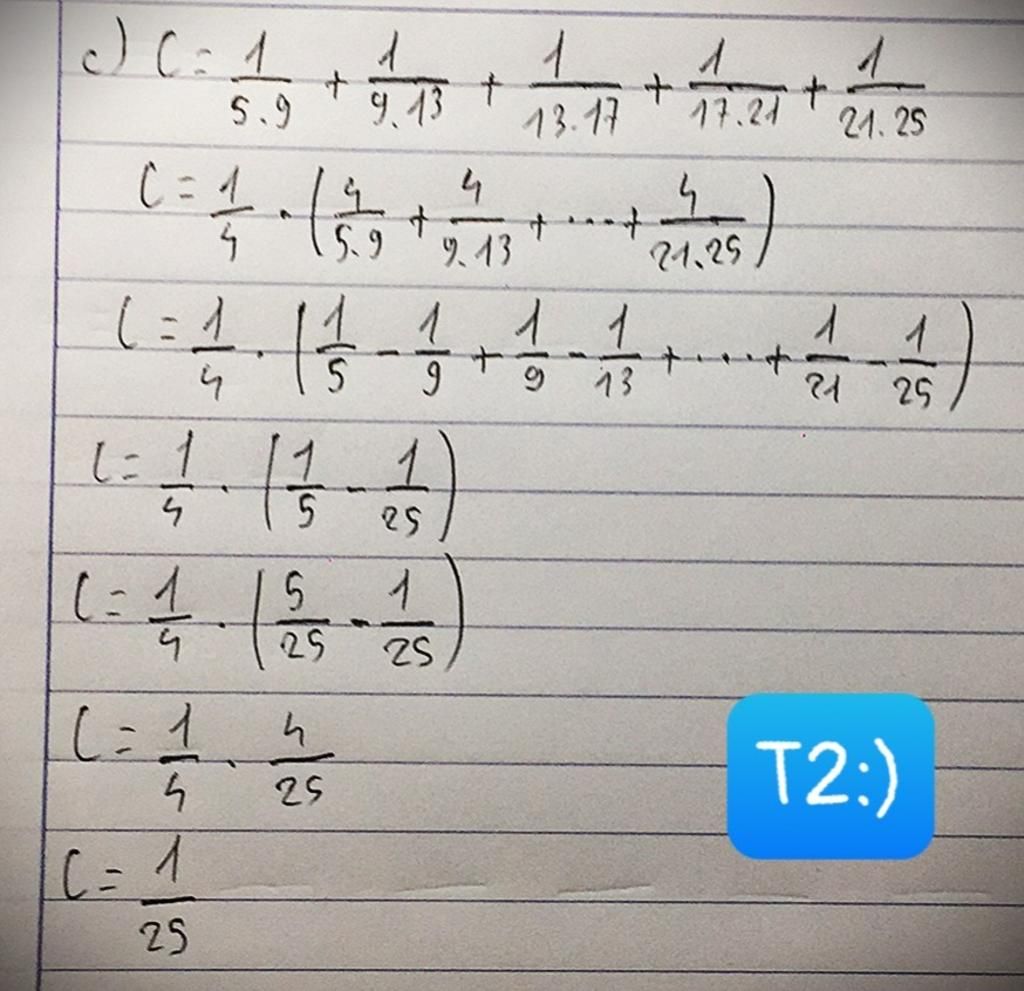 c) C = 1/5.9 + 1/9.13 + 1/13.17 + 1/17.21 + 1/21.25
C = 1/4 . (4/5.9 + 4/9.13 + ... + 4/21.25)
C = 1/4 . (1/5 - 1/9 + 1/9 - 1/13 + .... + 1/21 - 1/25)
C = 1/4 . (1/5 - 1/25)
C = 1/4 . (5/25 - 1/25)
C = 1/4 . 4/25
T2:)
C = 1/25